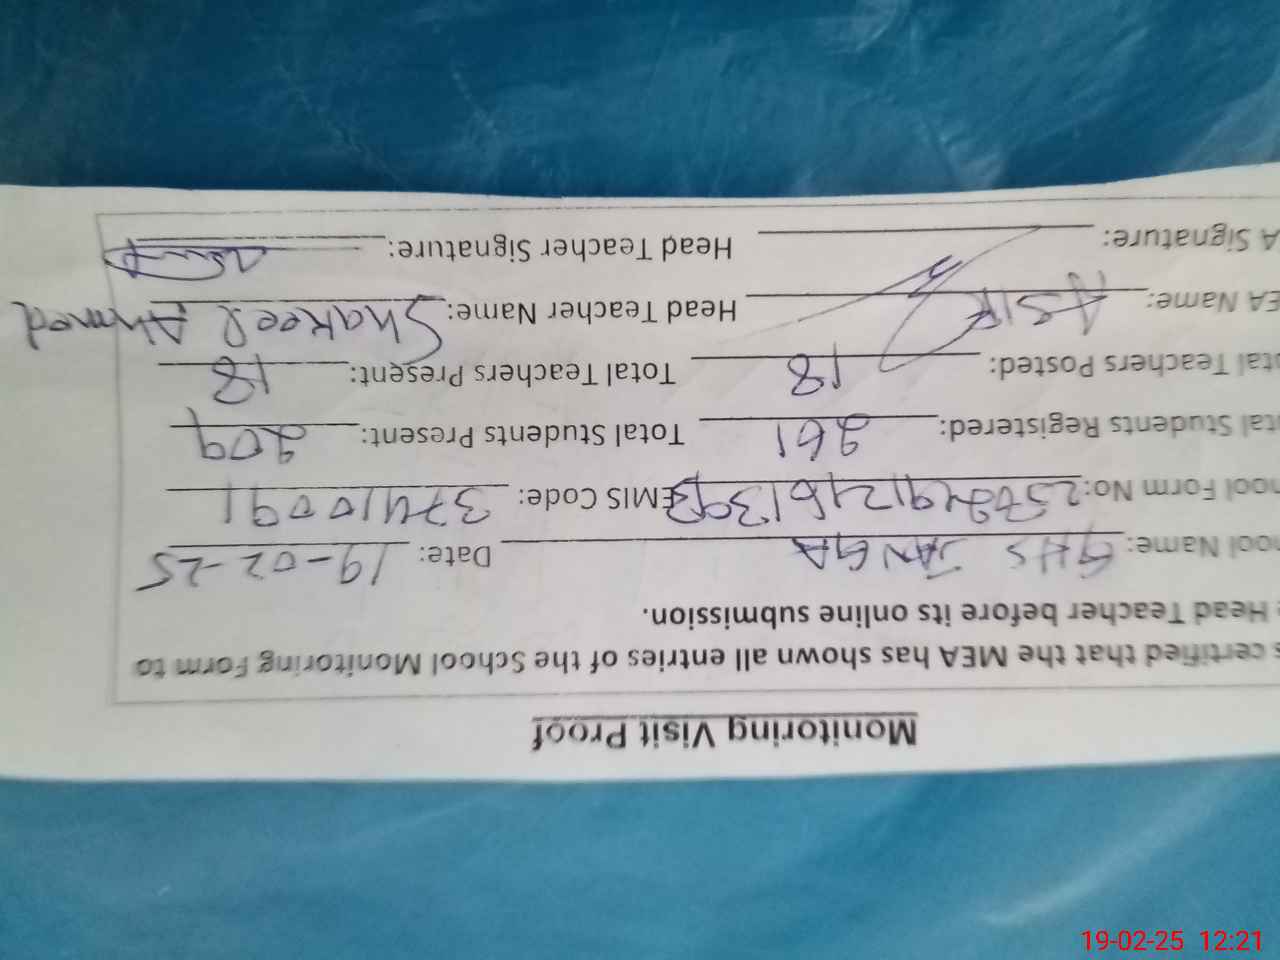 Monitoring Visit Proof
s certified that the MEA has shown all entries of the School Monitoring Form to
e Head Teacher before its online submission.
hool Name: GHS JANGA Date: 19-02-25
hool Form No: EMIS Code: 37410091
tal Students Registered: 261 Total Students Present: 209
tal Teachers Posted: 18 Total Teachers Present: 18
EA Name: ASIF Head Teacher Name: Shakeel Ahmed
A Signature: Head Teacher Signature:
19-02-25 12:21